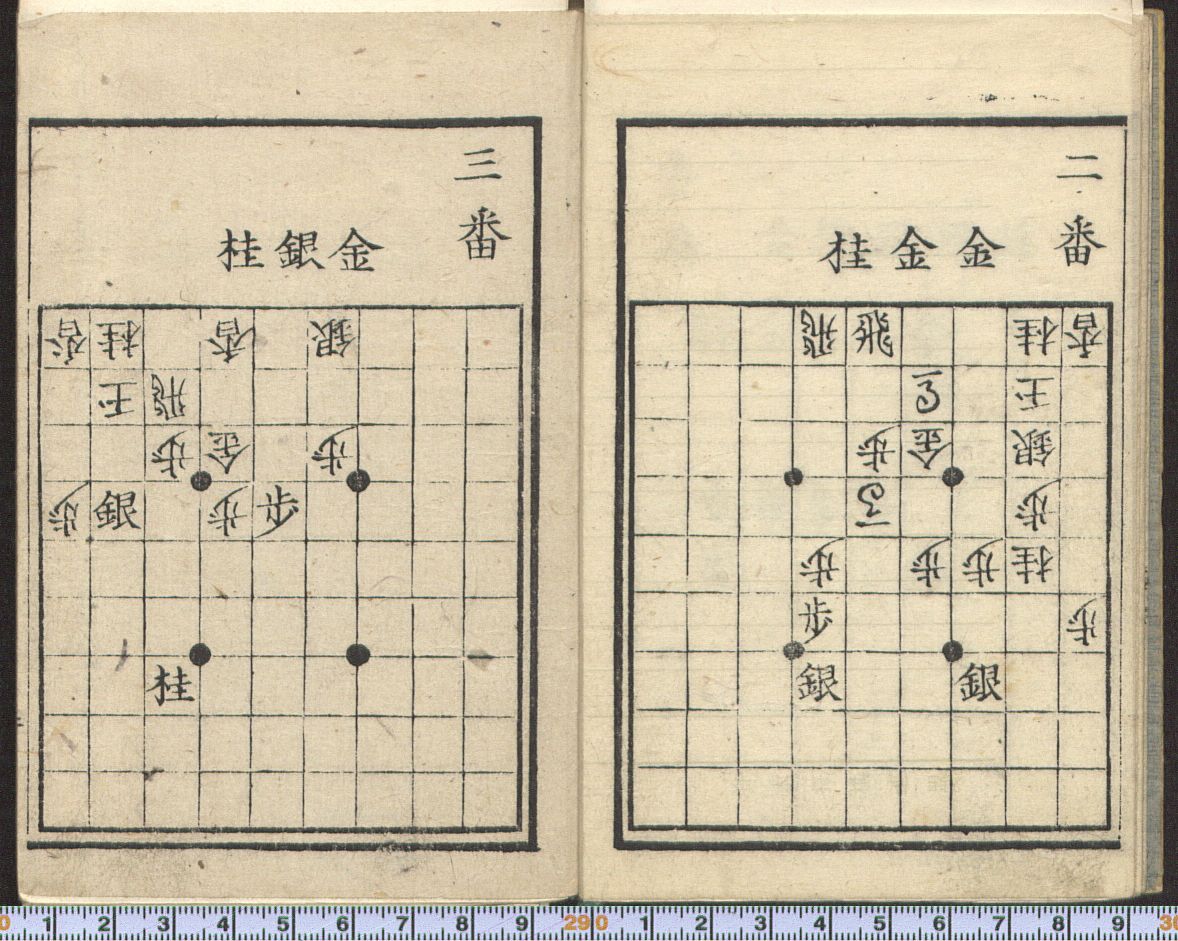 二番
金金桂
香桂飛飛
玉
銀金歩
歩
桂歩歩歩
歩歩
銀銀
三番
金銀桂
銀香桂香
飛玉
歩金歩
歩歩銀歩
桂
0 1 2 3 4 5 6 7 8 9 290 1 2 3 4 5 6 7 8 9 30